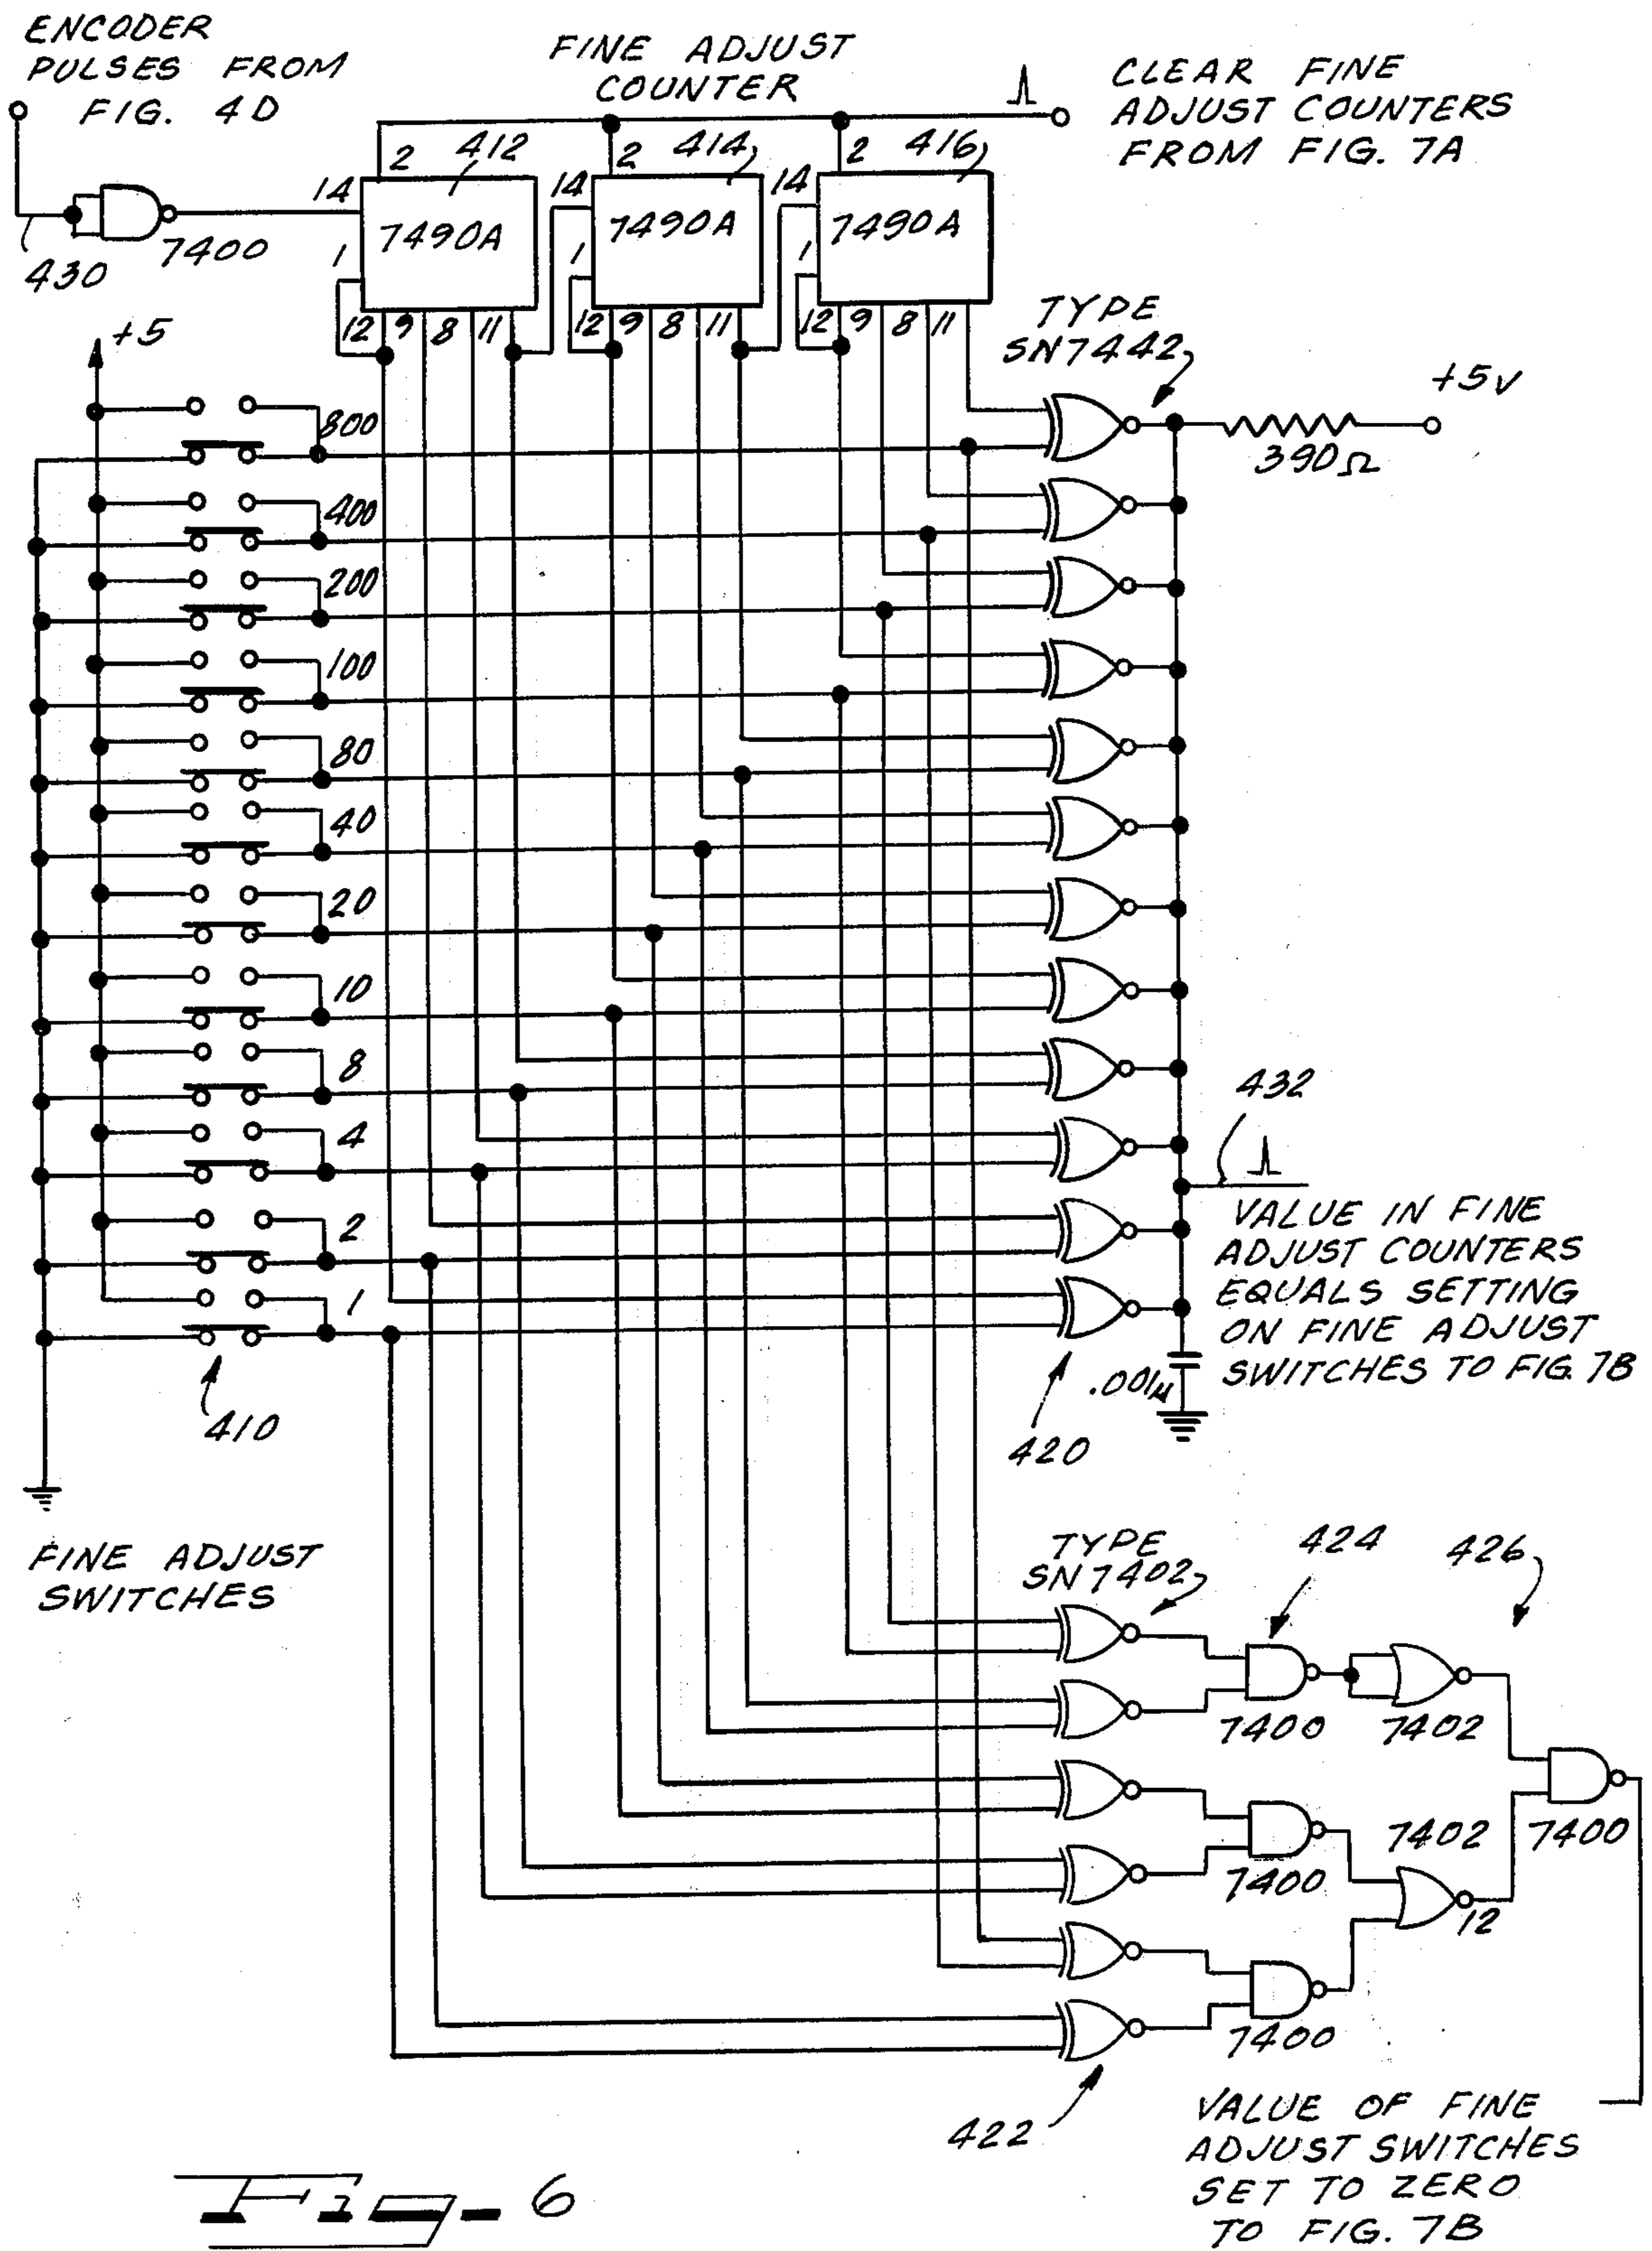 ENCODER
PULSES FROM
FIG. 4D
FINE ADJUST
COUNTER
CLEAR FINE
ADJUST COUNTERS
FROM FIG. 7A
430
7400
14
2
412
7490A
1
12
9
8
11
14
2
414
7490A
1
12
9
8
11
14
2
416
7490A
1
12
9
8
11
TYPE
SN7442
+5V
390Ω
+5
800
400
200
100
80
40
20
10
8
4
2
1
410
432
VALUE IN FINE
ADJUST COUNTERS
EQUALS SETTING
ON FINE ADJUST
SWITCHES TO FIG. 7B
.001μ
420
FINE ADJUST
SWITCHES
TYPE
SN7402
424
426
7400
7402
7400
7402
7400
12
7400
422
VALUE OF FINE
ADJUST SWITCHES
SET TO ZERO
TO FIG. 7B
Fig-6